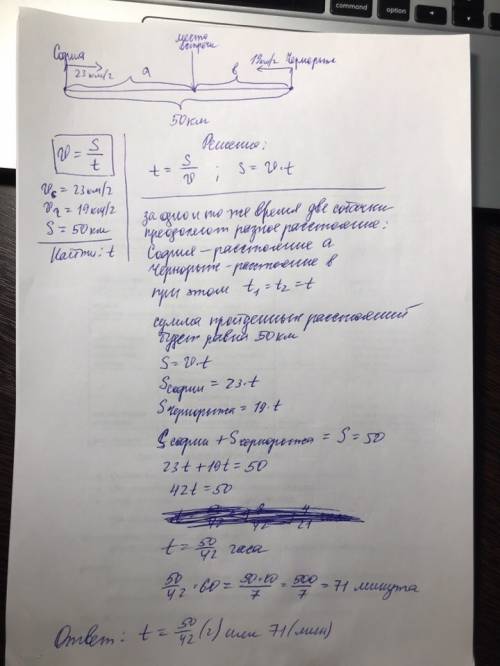 command
option
место
встречи
София
23 км/ч
a
в
19км/ч Чернорыж
50 км
v = S/t
vс = 23 км/ч
vч = 19 км/ч
S = 50 км
Найти: t
Решение:
t = S/v ; S = v·t
за одно и то же время две собачки
преодолеют разное расстояние:
София – расстояние a
Чернорыж – расстояние в
при этом t1 = t2 = t
сумма пройденных расстояний
будет равна 50 км
S = v·t
Sсофии = 23·t
Sчернорыжа = 19·t
Sсофии + Sчернорыжа = S = 50
23t + 19t = 50
42t = 50
t = 50/42 часа
50/42 · 60 = 50·10/7 = 500/7 = 71 минута
Ответ: t = 50/42 (ч) или 71 (мин)